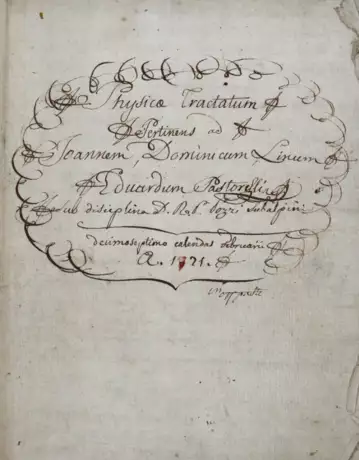 Physicæ Tractatum
Pertinens ad
Joannem, Dominicum Linum
Eduardum Pastorelli
disciplina D. R. P. Pozzi
decimoseptimo calendas februarii
A. 1771.